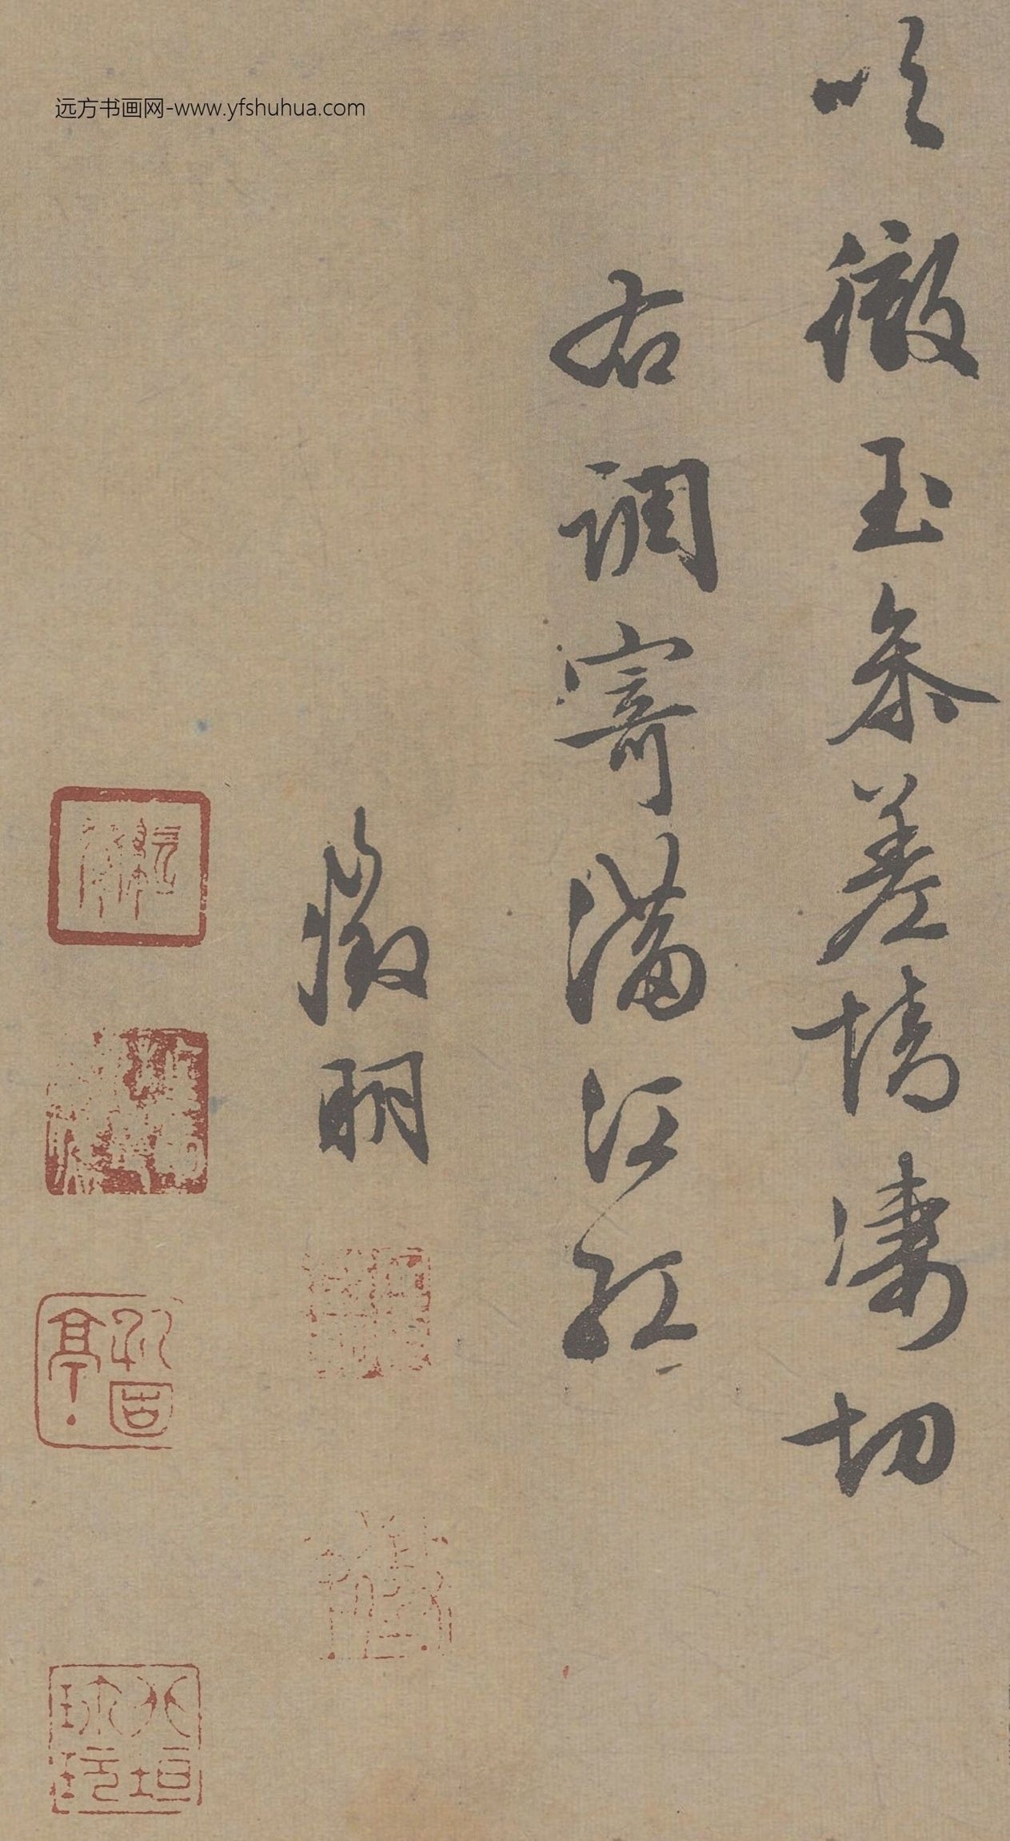 远方书画网-www.yfshuhua.com
吹徹玉參差情凄切
右調寄滿江紅
徵明